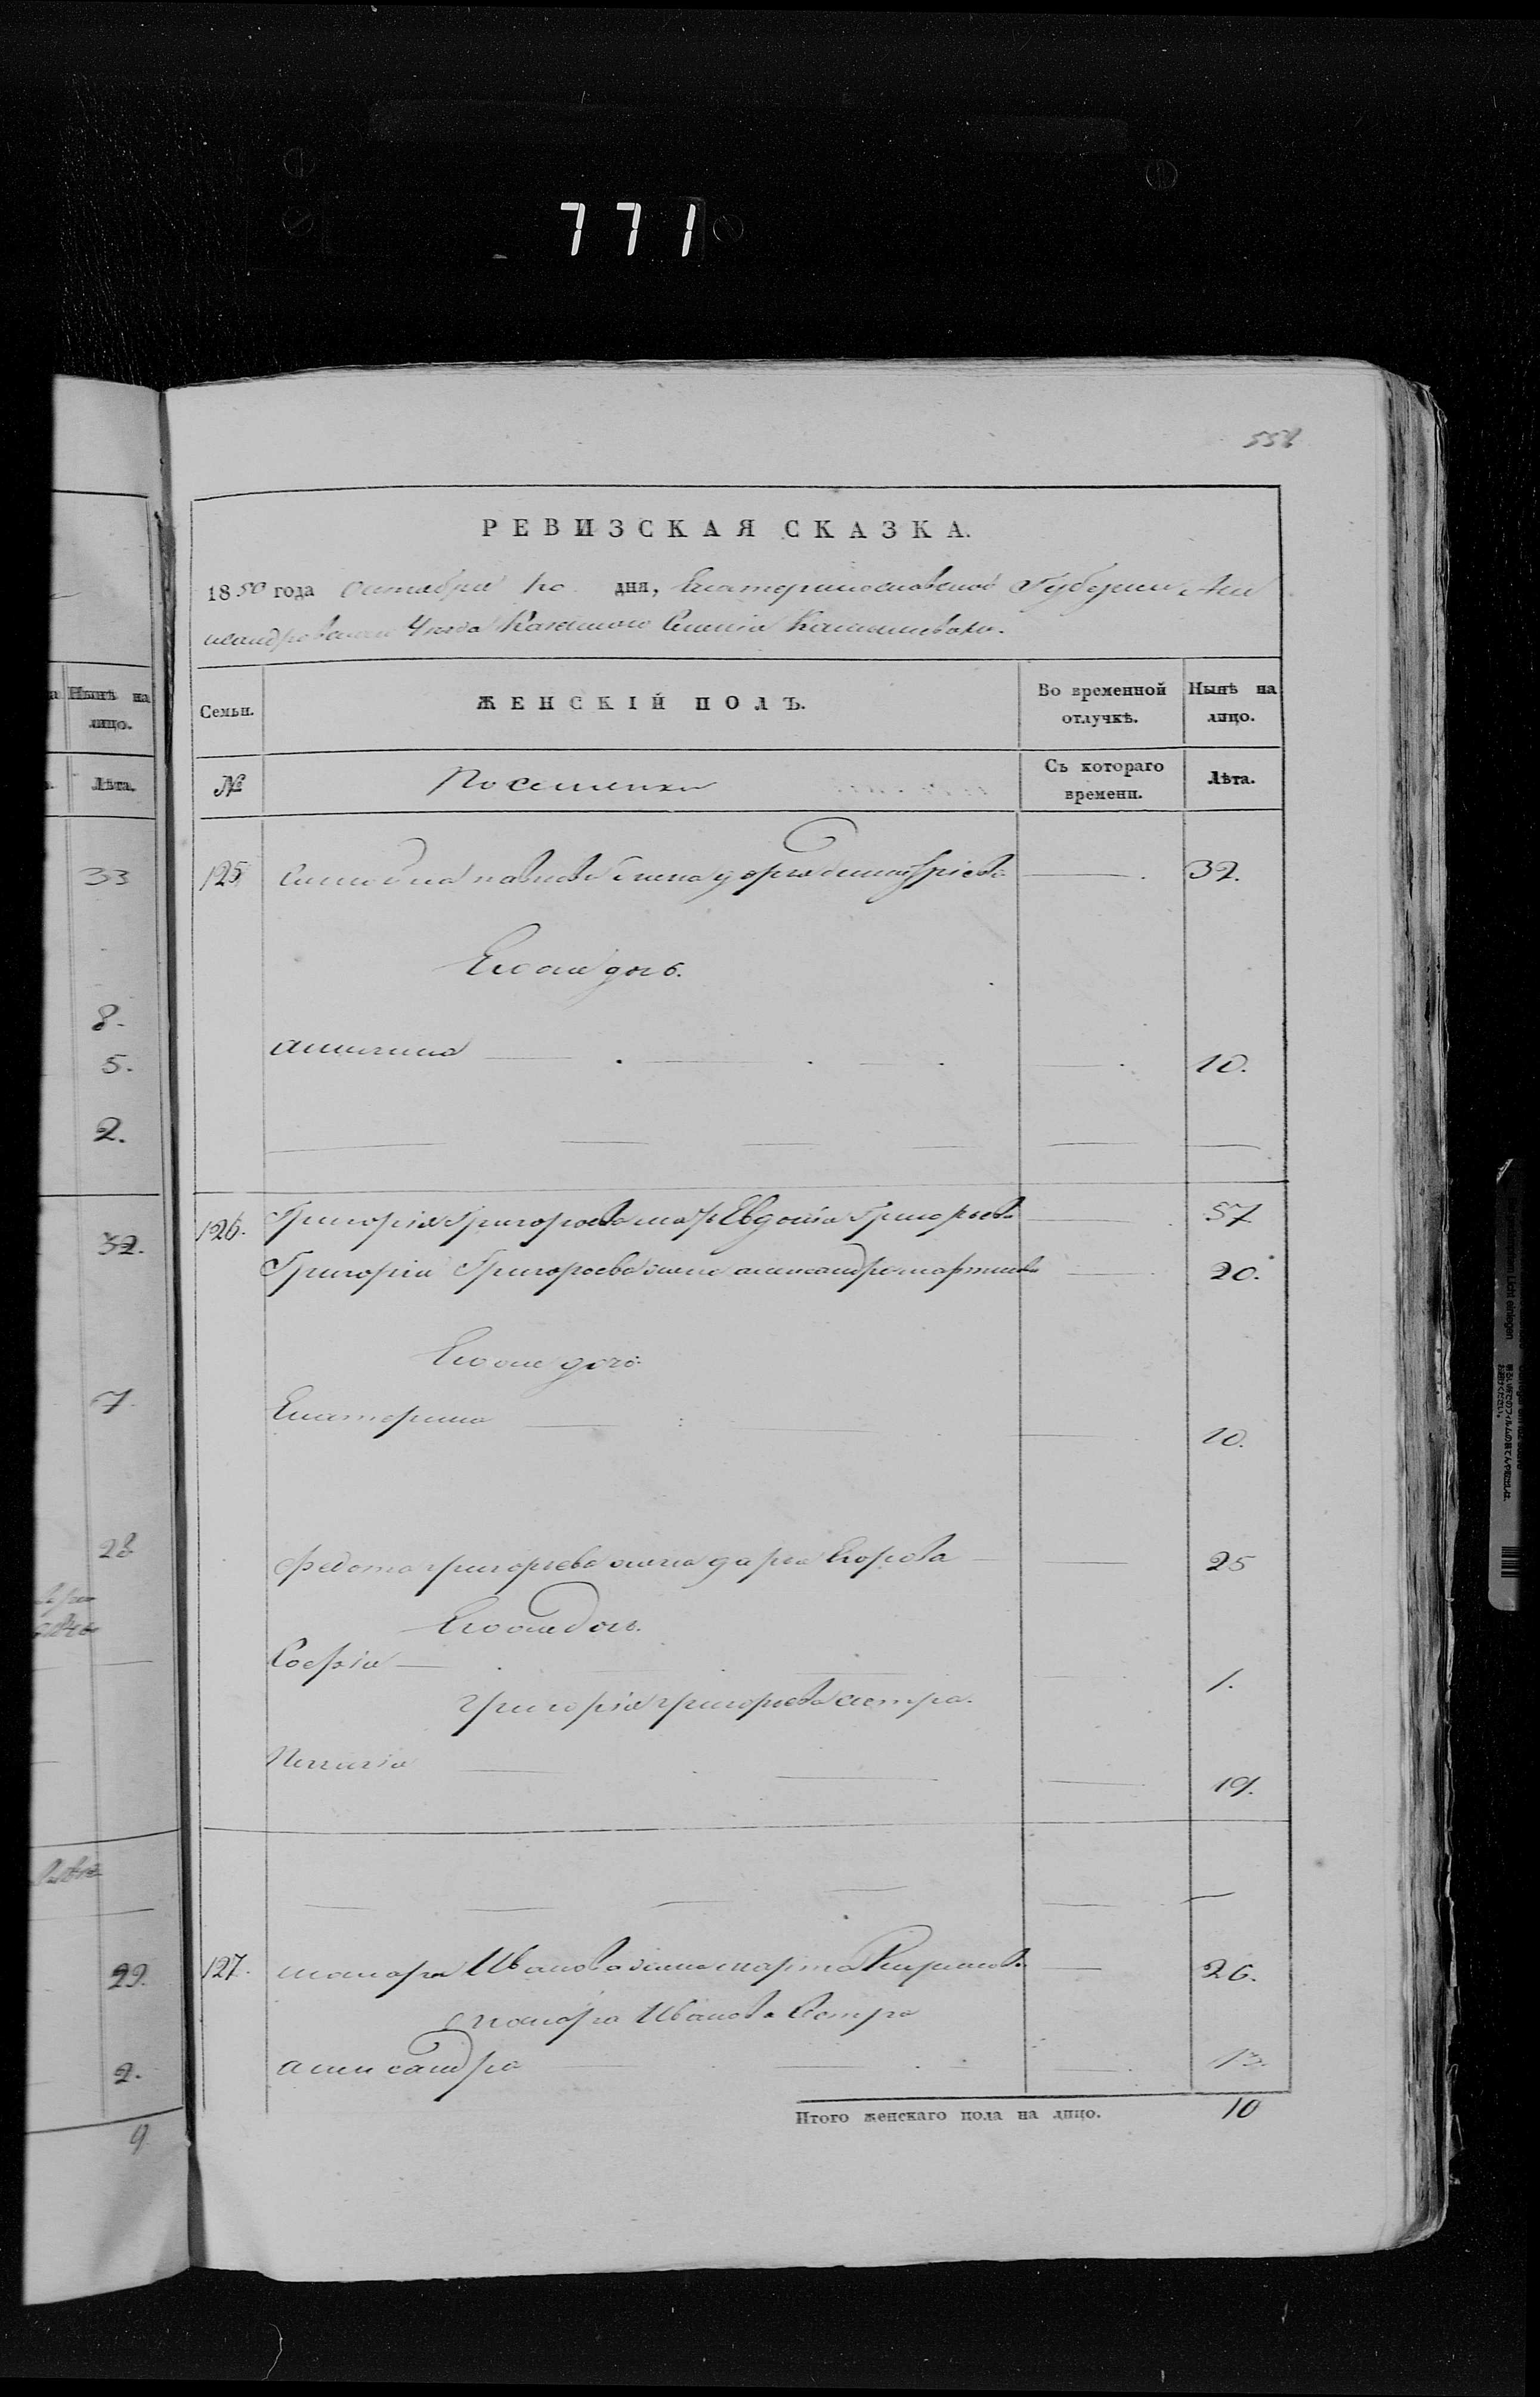 771
558
РЕВИЗСКАЯ СКАЗКА.
1850 года Октября дня, Екатеринославской Губернии Але
ксандровскаго Уезда Казенного Селения
Семьи.
ЖЕНСКІЙ ПОЛЪ.
Во временной отлучкѣ.
Нынѣ на лицо.
№
Поселенки
Съ котораго времени.
Лѣта.
125 павлова жена дарья дмитріева 32.
Его же дочь.
10.
126. Григорія Григорьева мать Евдокія Григорьева 57
Григорія Григорьева жена александра мартинова 20.
Его же дочь
Екатерина 10.
Федота григорьева жена дарья Егорова 25
Его же дочь.
Софія 1.
григорія григорьева сестра.
19.
127. Иванова жена марфа 26.
Иванова Сестра
александра 13.
Итого женскаго пола на лицо. 10
Нынѣ на лицо.
Лѣта.
33
8.
5.
2.
32.
7.
28
29.
2.
9